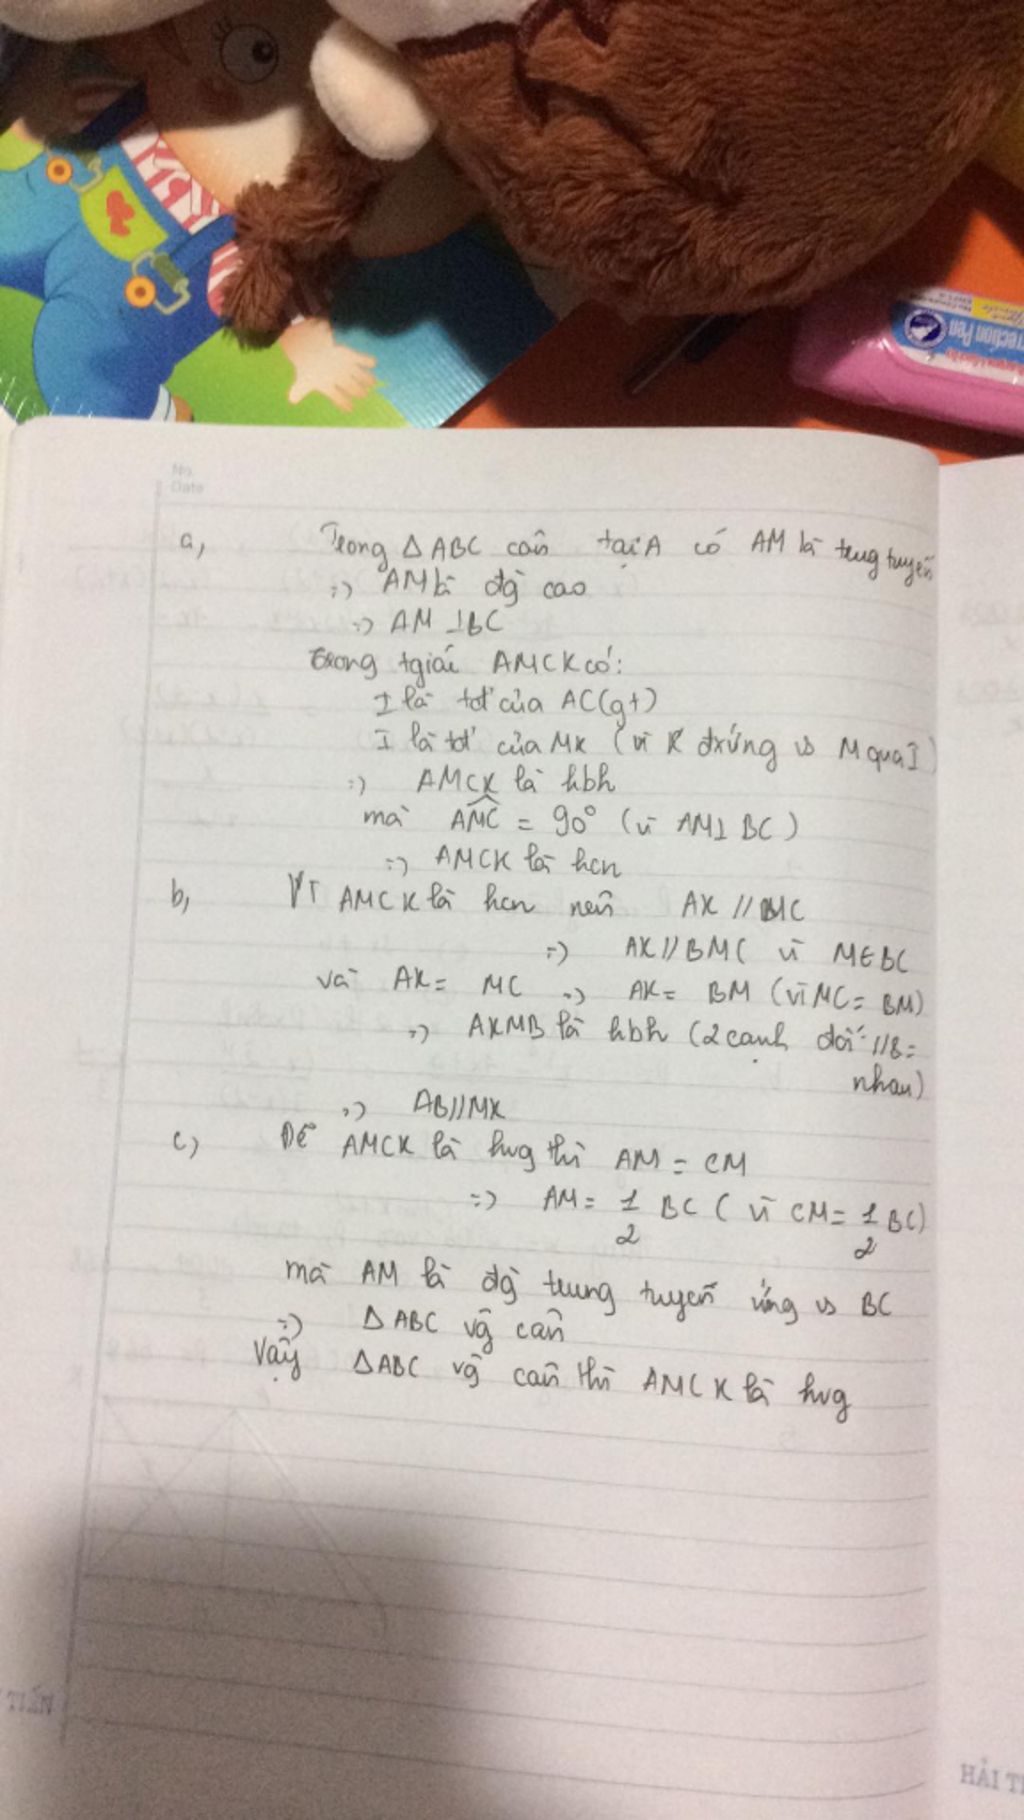 rection Pen
No.
Date
a, Trong Δ ABC cân tại A có AM là trung tuyến
=> AM là đg` cao
=> AM ⊥ BC
Trong tgiác AMCK có:
I là tđ' của AC (gt)
I là tđ' của MK (vì K đxứng vs M qua I)
=> AMCK là hbh
mà AMC = 90° (vì AM ⊥ BC)
=> AMCK là hcn
b, Vì AMCK là hcn nên AK // MC
=> AK // BMC vì M ∈ BC
và AK = MC => AK = BM (vì MC = BM)
=> AKMB là hbh (2 cạnh đối // & =
nhau)
=> AB // MK
c, Để AMCK là hvg thì AM = CM
=> AM = 1/2 BC (vì CM = 1/2 BC)
mà AM là đg` trung tuyến ứng vs BC
=> Δ ABC vg cân
Vậy Δ ABC vg cân thì AMCK là hvg
TIẾN
HẢI T